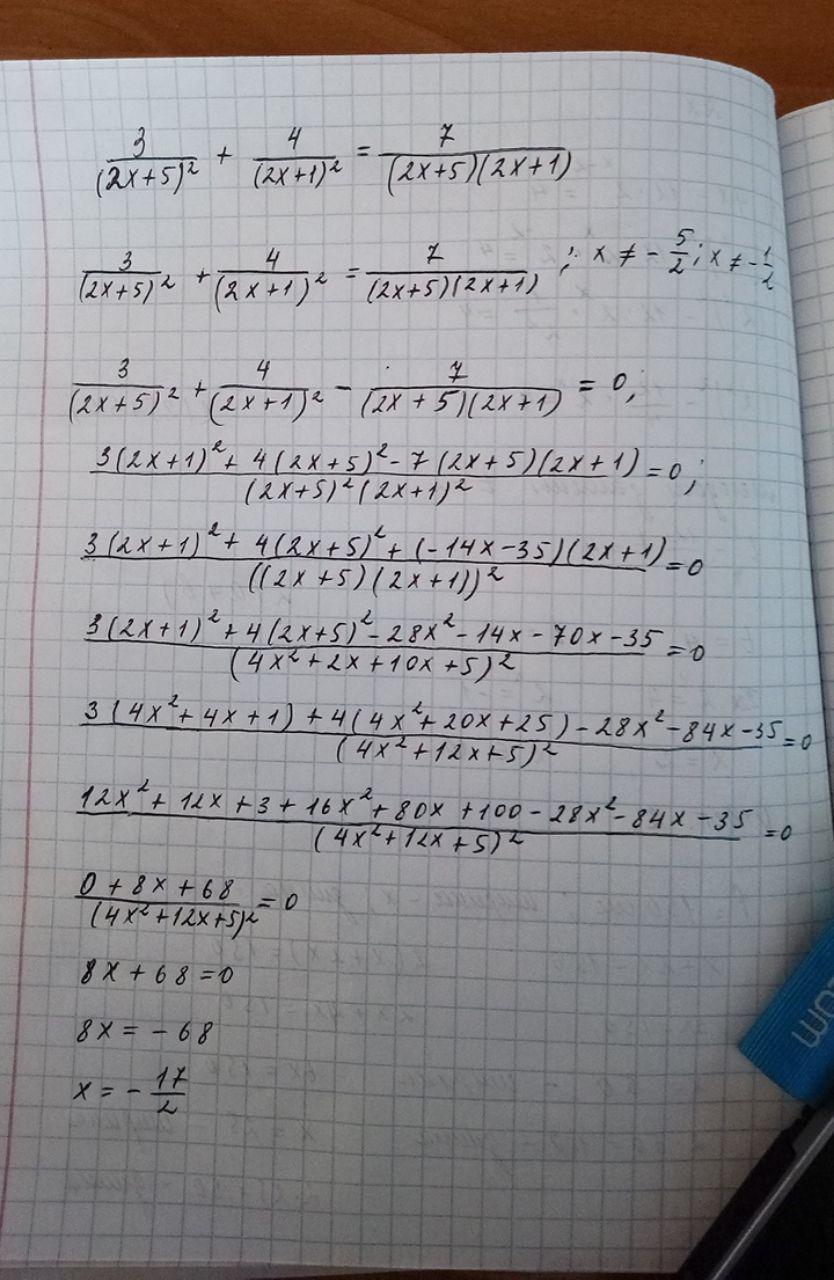 3/(2x+5)² + 4/(2x+1)² = 7/((2x+5)(2x+1))
3/(2x+5)² + 4/(2x+1)² = 7/((2x+5)(2x+1)) ; x ≠ -5/2; x ≠ -1/2
3/(2x+5)² + 4/(2x+1)² - 7/((2x+5)(2x+1)) = 0,
(3(2x+1)² + 4(2x+5)² - 7(2x+5)(2x+1))/((2x+5)²(2x+1)²) = 0;
(3(2x+1)² + 4(2x+5)² + (-14x-35)(2x+1))/((2x+5)(2x+1))² = 0
(3(2x+1)² + 4(2x+5)² - 28x² - 14x - 70x - 35)/(4x²+2x+10x+5)² = 0
(3(4x²+4x+1) + 4(4x²+20x+25) - 28x² - 84x - 35)/(4x²+12x+5)² = 0
(12x² + 12x + 3 + 16x² + 80x + 100 - 28x² - 84x - 35)/(4x²+12x+5)² = 0
(0 + 8x + 68)/(4x²+12x+5)² = 0
8x + 68 = 0
8x = -68
x = -17/2